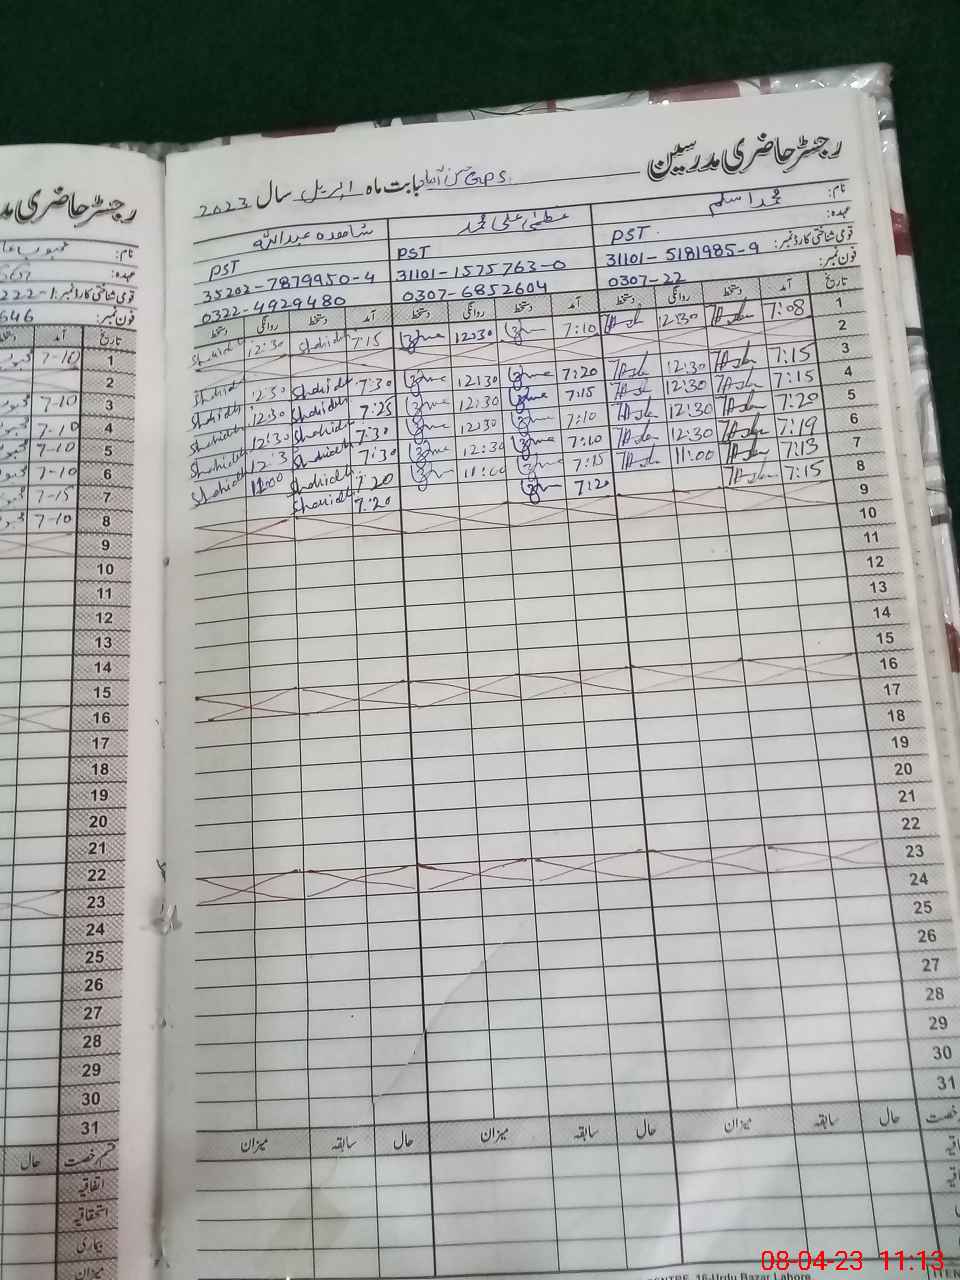 رجسٹر حاضری مدرسین GPS حسن آباد بابت ماہ اپریل سال 2023
نام: محمد اسلم عظمیٰ علی محمد شاہدہ عبداللہ
عہدہ: PST. PST PST
قومی شناختی کارڈ نمبر: 31101-5181985-9 31101-1575763-0 35202-7879950-4
فون نمبر: 0307-22 0307-6852604 0322-4929480
تاریخ آمد دستخط روانگی دستخط آمد دستخط روانگی دستخط آمد دستخط روانگی دستخط
1 7:08 12:30 7:10 12:30 7:15 Shahidh 12:30 Shahidh
2
3 7:15 12:30 7:20 12:30 7:30 Shahidh 12:30 Shahidh
4 7:15 12:30 7:15 12:30 7:25 Shahidh 12:30 Shahidh
5 7:20 12:30 7:10 12:30 7:30 Shahidh 12:30 Shahidh
6 7:19 12:30 7:10 12:30 7:30 Shahidh 12:3 Shahidh
7 7:13 11:00 7:15 11:00 7:20 Shahidh 11:00 Shahidh
8 7:15 7:20 7:20 Shahidh
9
10
11
12
13
14
15
16
17
18
19
20
21
22
23
24
25
26
27
28
29
30
31
حال سابقہ میزان حال سابقہ میزان حال سابقہ میزان
16-Urdu Bazar Lahore
رجسٹر حاضری
نام:
عہدہ:
قومی شناختی کارڈ نمبر: 222-1
فون نمبر: 646
تاریخ آمد
1 7-10
2
3 7-10
4 7-10
5 7-10
6 7-10
7 7-15
8 7-10
9
10
11
12
13
14
15
16
17
18
19
20
21
22
23
24
25
26
27
28
29
30
31
قسم رخصت حال
اتفاقیہ
استحقاقیہ
بیماری
میزان
08-04-23 11:13